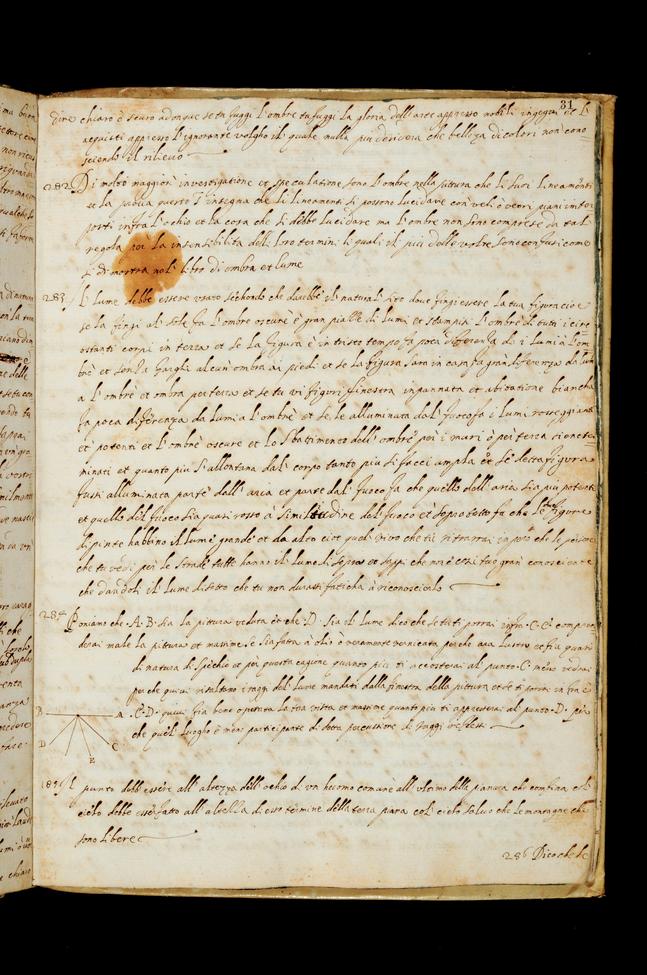 31
dire chiaro è scuro adonque se tu fuggi l'ombre tu fuggi la gloria dell'arte appresso nobili ingegni et l'
acquisti appresso l'ignorante volgho il quale nulla più desidera che bellezza di colori non cono
sciendo il rilievo
282 Di molto maggior' investigatione et speculatione sono l'ombre nella pittura che li suoi lineamenti
et la pruova di questo s'insegna che li lineamenti si possono lucidare con veli o vetri piani inter
posti infra l'ochio et la cosa che si debbe lucidare ma l'ombre non sono comprese da tal'
regola per la insensibilità de loro termini li quali il più delle volte sono confusi come
si dimostra nel' libro di ombra et lume
283 Il lume debbe essere usato secondo che darebbe il natural' sito dove fingi essere la tua figura cioè
se la fingi al sole fa l'ombre oscure è gran piazze di lumi et stampisi l'ombre di tutti i circ
ostanti corpi in terra et se la figura è in tristo tempo fa poca diferenza da i lumi a l'om
bre et senza fargli alcun' ombra ai piedi et se la figura sara in casa fa gran diferenza da lumi
a l'ombre et ombra per terra et se tu vi figuri finestra inpannata et abitatione biancha
fa poca diferenza da lumi a l'ombre et se le alluminata dal' fuoco fa è lumi rosseggianti
et potenti et l'ombre oscure et lo sbattimento dell' ombre per i muri ò per terra sieno ter
minati et quanto più s'allontana dal' corpo tanto più si facci ampla et se detta figura
fusti alluminata parte dall' aria et parte dal' fuoco fa che quello dell'aria sia più potente
et quello del fuoco sia quasi rosso à similitudine del fuoco et sopra tutto fa che le tue figure
dipinte habbino il lume grande et da alto cioè quel vivo che tu ritrarrai inpero che le persone
che tu vedi per le strade tutte hanno il lume di sopra et sappi che non è cosi tuo gran' conosciente
che dandoli il lume di sotto che tu non durassi faticha à riconoscierlo
284 Poniamo che A. B. sia la pittura veduta et che D. sia il lume dico che se tu ti porrai infra C. E. compren
derai male la pittura et massime se sia fatta à olio ò veramente vernicata perche ara lustro et fia quasi
di natura di spechio et per questa cagione quanto più ti accosterai al punto C. meno vedrai
perche quivi risultano i raggi del lume mandati dalla finestra della pittura et se ti porrai in fra E
C. D. quivi fia bene operata la tua vista et massime quanto più ti appresserai al punto D. per
che quel' luogho è meno participante di detta percussione di raggi reflessi
B A
D E C
285 Il punto debb' essere all' altezza dell' ochio di un huomo comune all' ultimo della pianura che confina col'
cielo debbe esser fatto all' altezza di esso termine della terra piana col' cielo salvo che le montagne che
sono libere
286 Dico che le